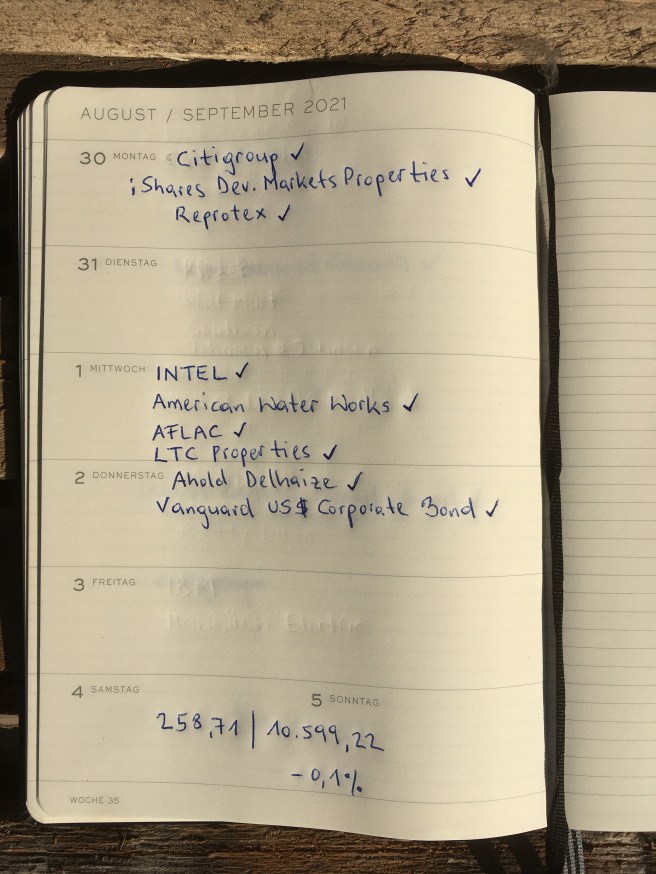 AUGUST / SEPTEMBER 2021
30 MONTAG Citigroup ✓
iShares Dev. Markets Properties ✓
Reprotex ✓
31 DIENSTAG
1 MITTWOCH INTEL ✓
American Water Works ✓
AFLAC ✓
LTC Properties ✓
2 DONNERSTAG Ahold Delhaize ✓
Vanguard US$ Corporate Bond ✓
3 FREITAG
4 SAMSTAG
5 SONNTAG
258,71 | 10.599,22
-0,1%
WOCHE 35